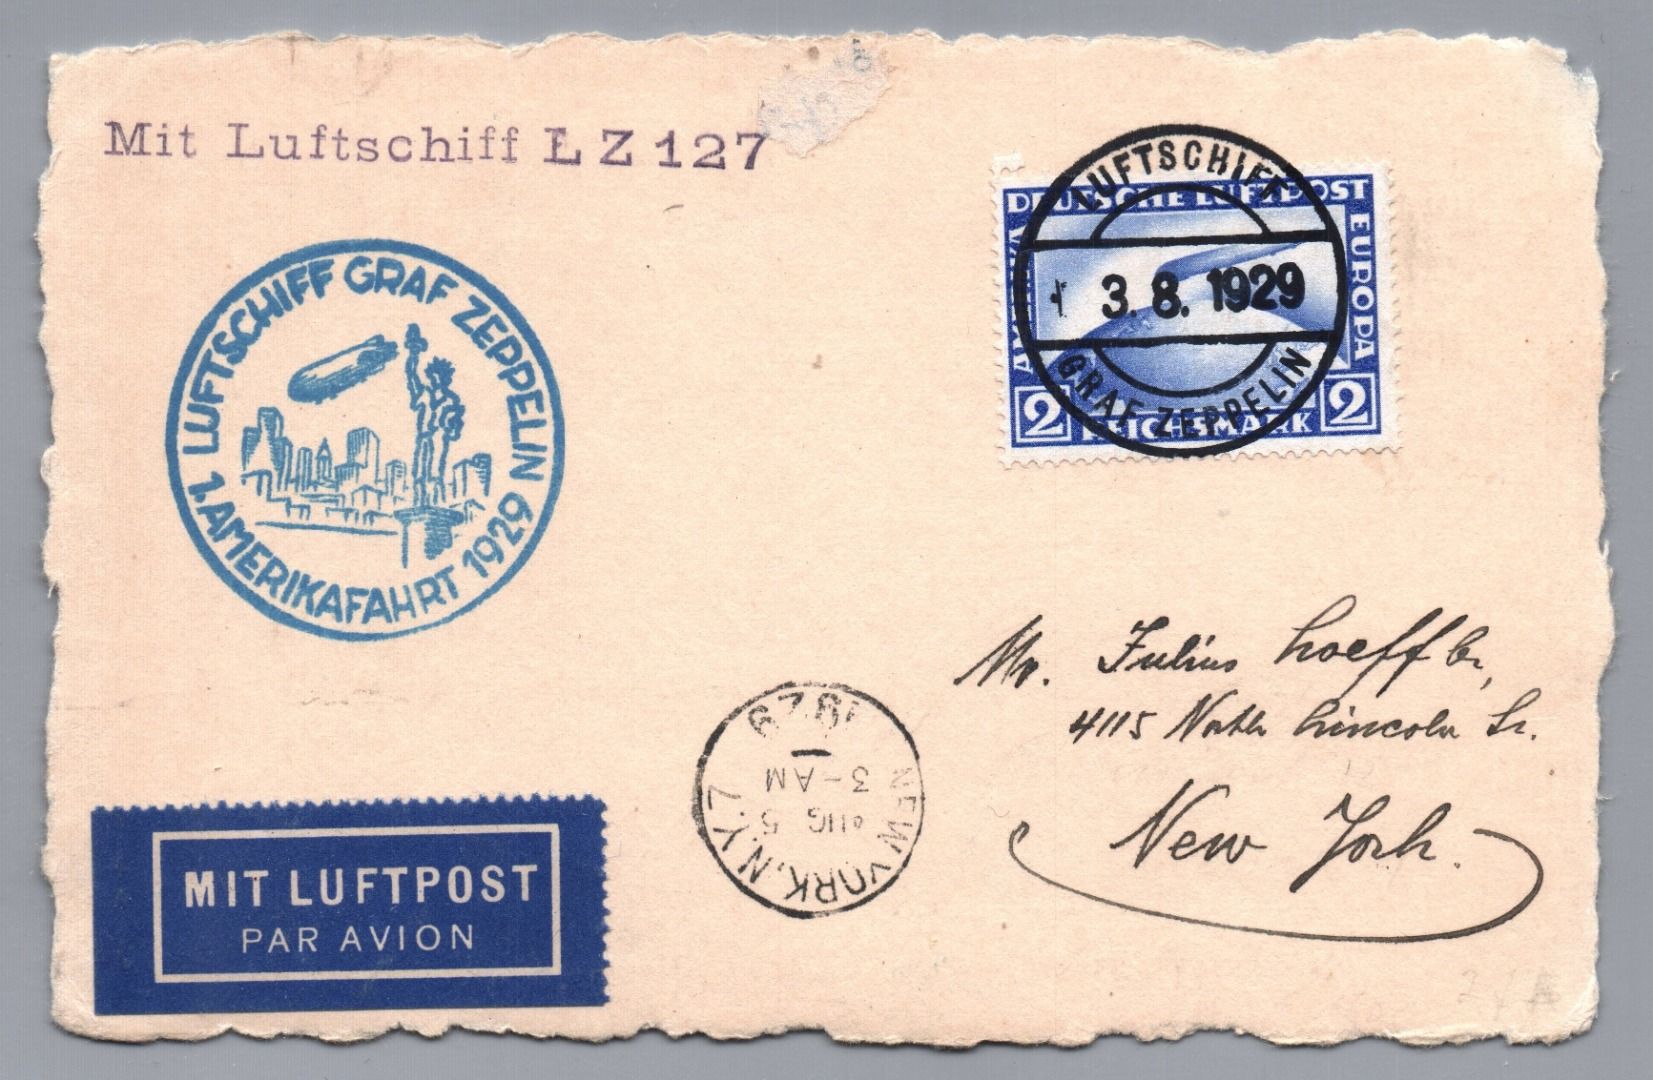 Mit Luftschiff LZ 127
LUFTSCHIFF GRAF ZEPPELIN
1. AMERIKAFAHRT 1929
DEUTSCHE LUFTPOST
EUROPA
2 REICHSMARK 2
LUFTSCHIFF
3. 8. 1929
GRAF ZEPPELIN
Mr. Julius
4115 North Lincoln St.
New York.
NEW YORK, N.Y.
AUG 5
3-AM
1929
MIT LUFTPOST
PAR AVION